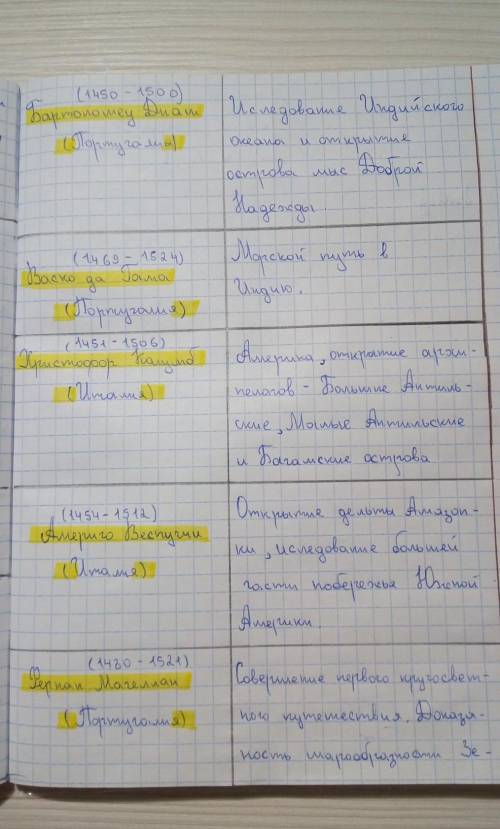 (1450 - 1500)
Бартоломеу Диаш
(Португалия)
Иследование Индийского
океана и открытие
острова мыс Доброй
Надежды.
(1469 - 1524)
Васко да Гама
(Португалия)
Морской путь в
Индию.
(1451 - 1506)
Христофор Колумб
(Италия)
Америка, открытие архи-
пелагов - Большие Антиль-
ские, Малые Антильские
и Багамские острова
(1454-1512)
Америго Веспуччи
(Италия)
Открытие дельты Амазон-
ки, иследование большей
части побережья Южной
Америки.
(1480 - 1521)
Фернан Магеллан
(Португалия)
Совершение первого кругосвет-
ного путешествия. Доказа-
ность шарообразности Зе-